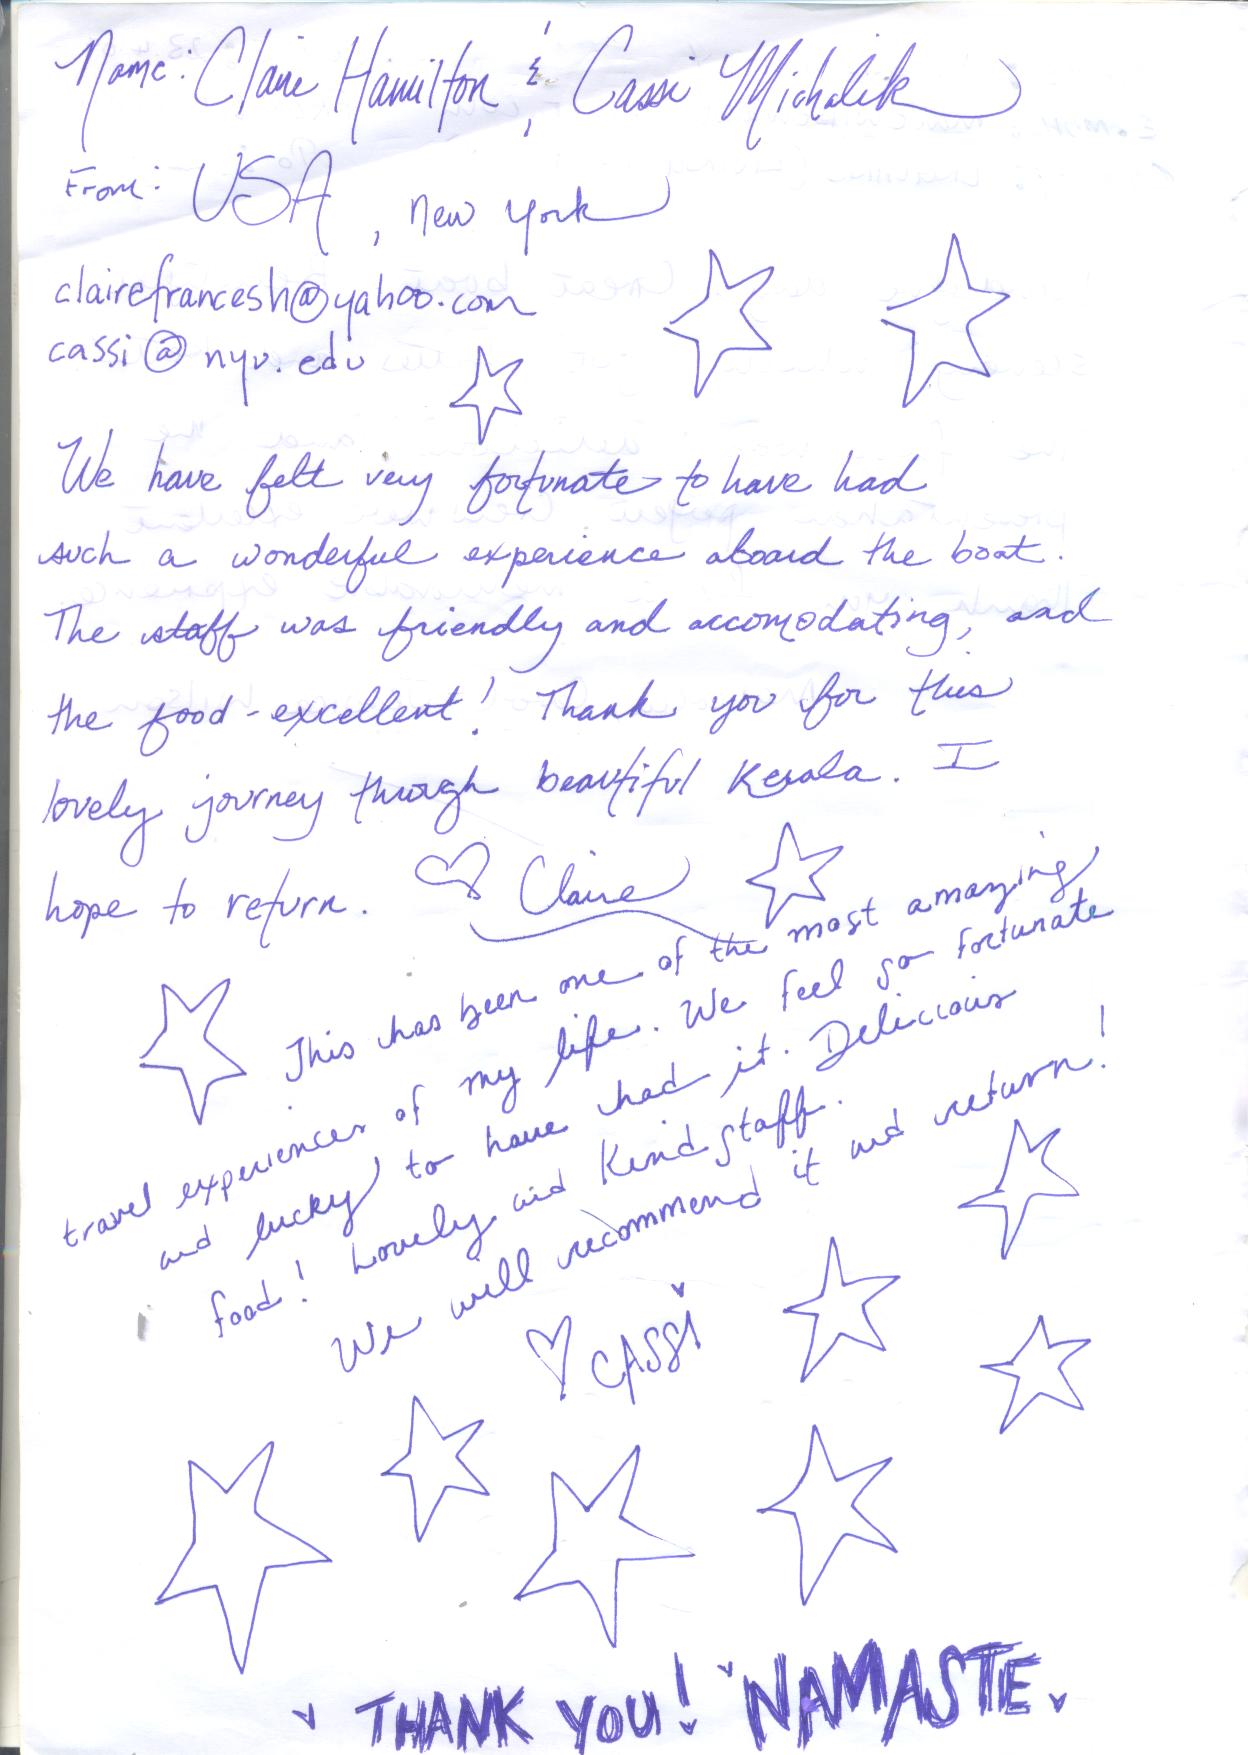 Name: Claire Hamilton, & Cassi Michalik
From: USA, New York
clairefrancesh@yahoo.com
cassi@nyu.edu
We have felt very fortunate to have had
such a wonderful experience aboard the boat.
The staff was friendly and accomodating, and
the food - excellent! Thank you for this
lovely journey through beautiful Kerala. I
hope to return. ♡ Claire
This has been one of the most amazing
travel experiences of my life. We feel so fortunate
and lucky to have had it. Delicious
food! Lovely and Kind staff.
We will recommend it and return!
♡ CASSi
THANK YOU! NAMASTE